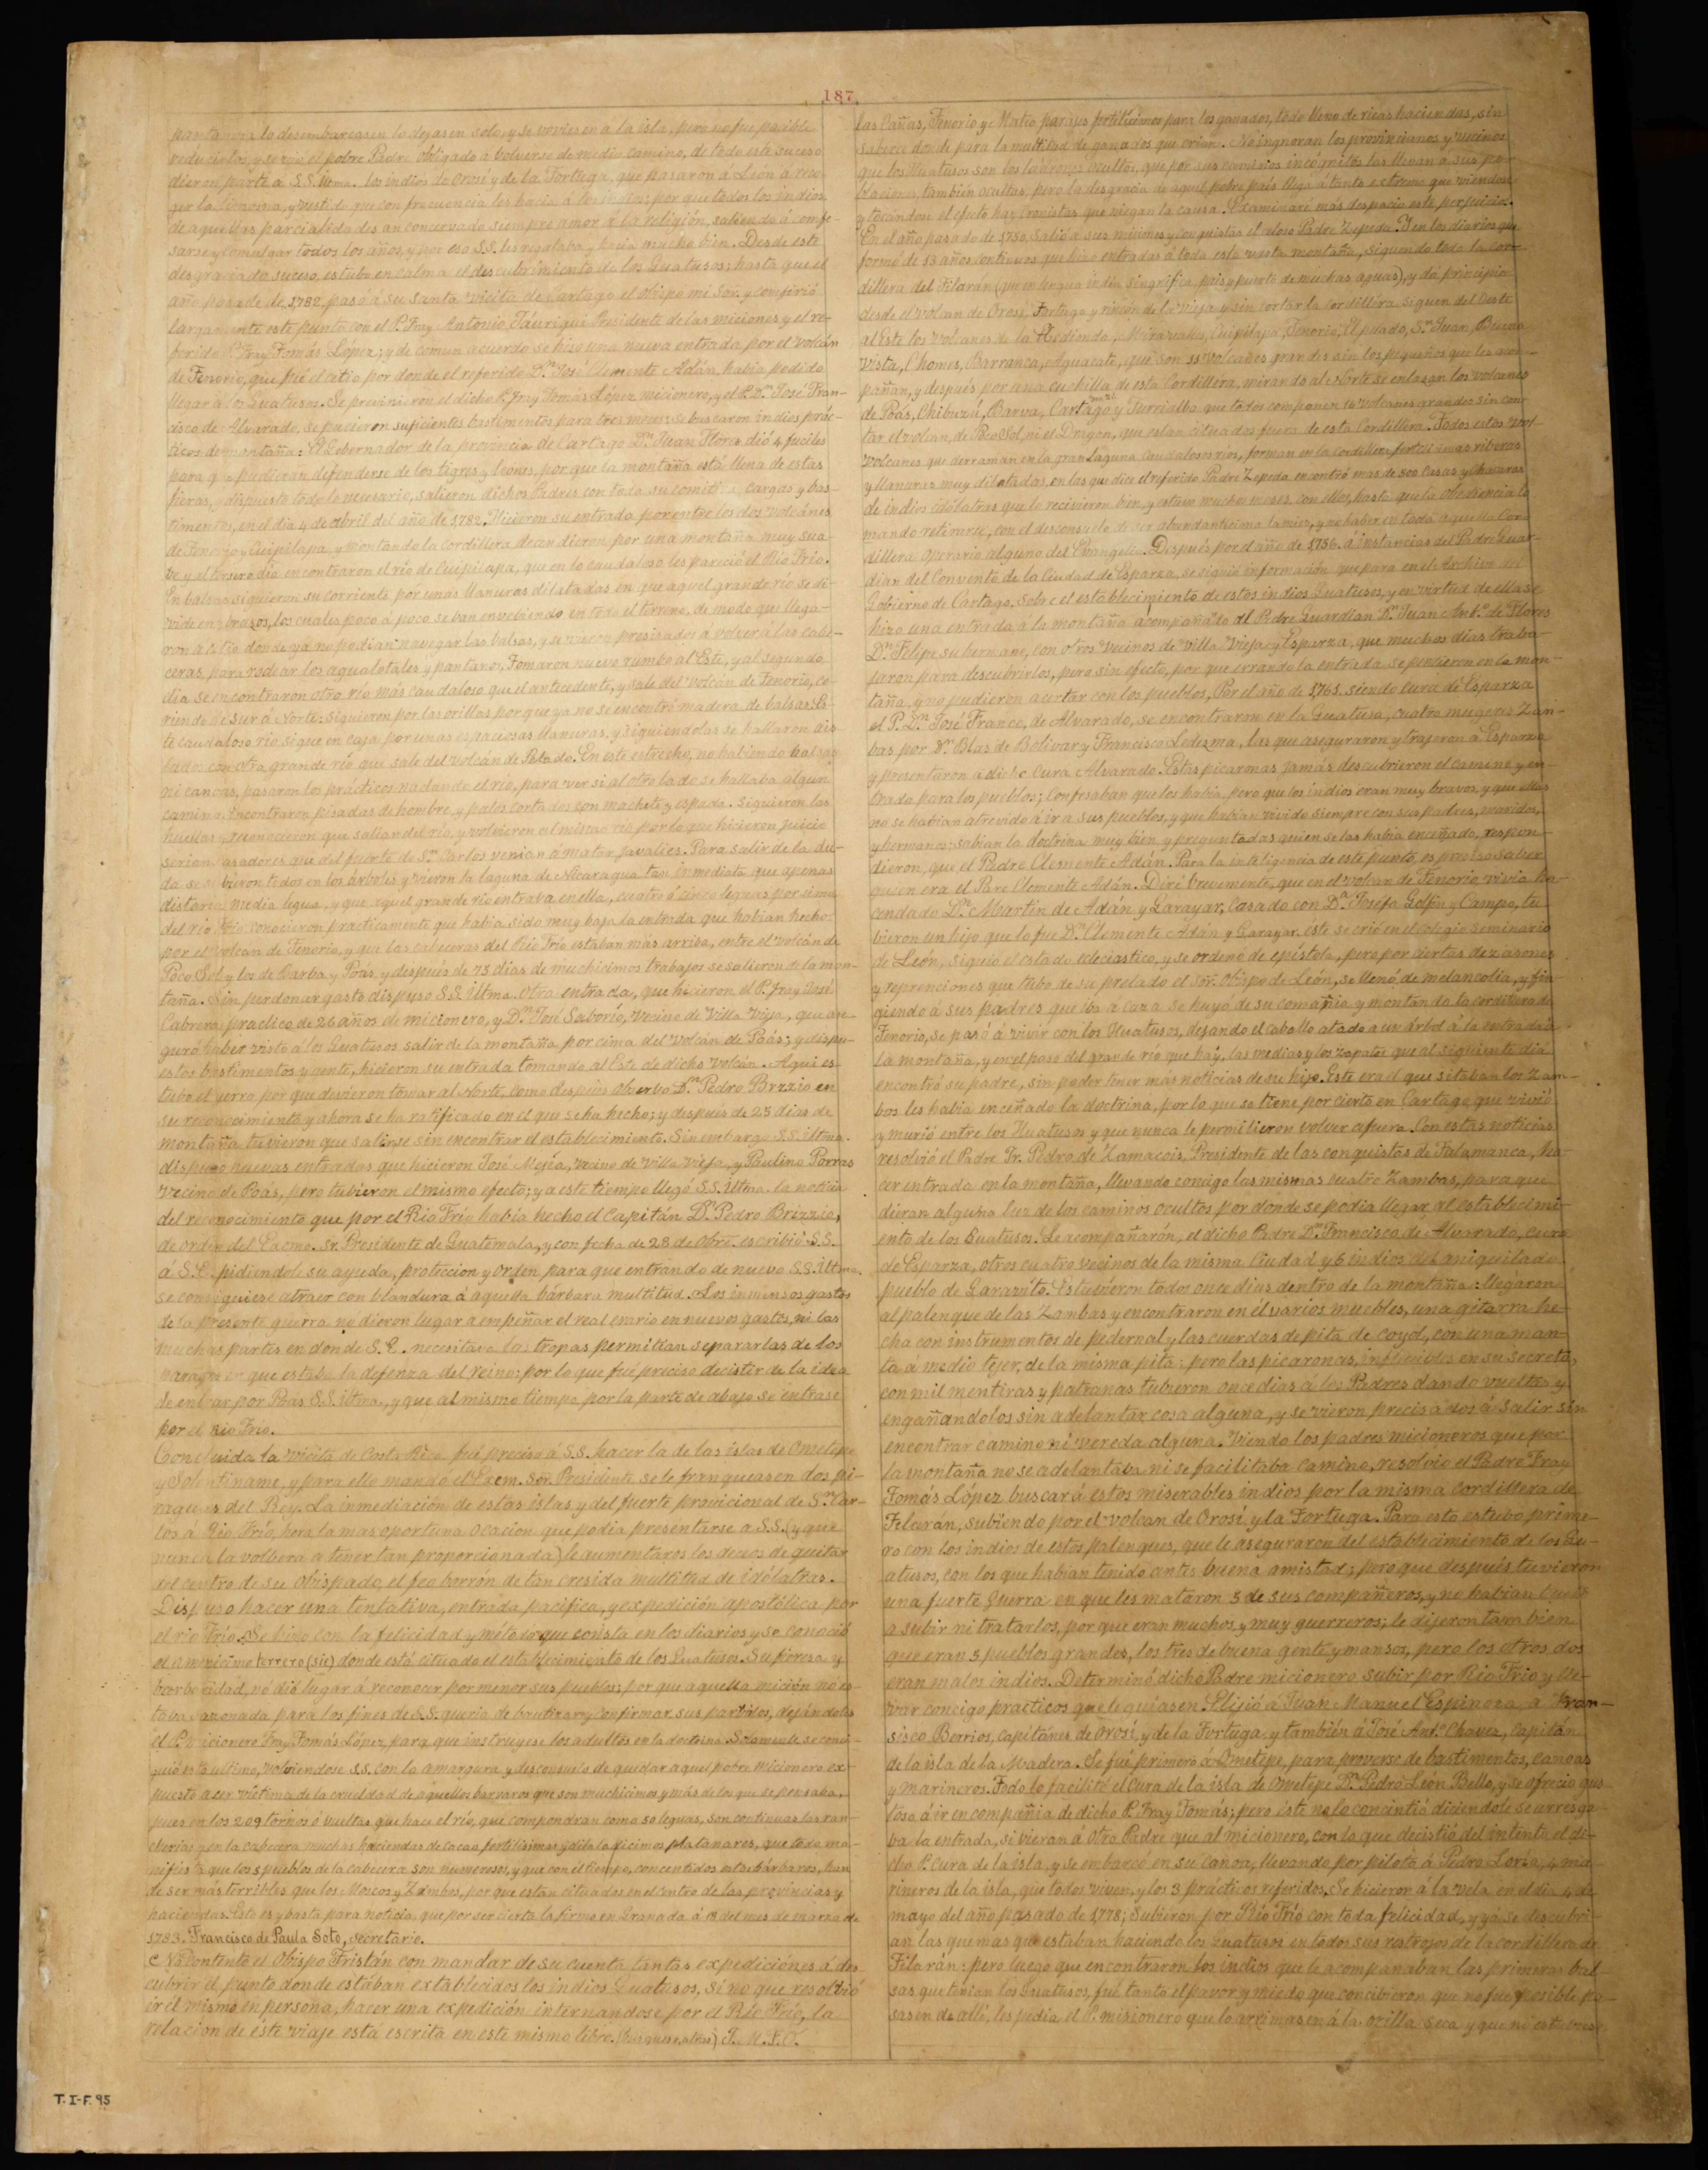 187
lo desembarcasen lo dejasen solo, y se volviesen á la isla, pero no fue posible
reducirlos, y se vió el pobre Padre obligado a volverse de medio camino, de todo este suceso
dieron parte á S.S. Iltma. los indios de Orosí y de la Tortuga, que pasaron á León á reco-
ger la limosna, y vestido que con frecuencia les hacía por que todos los indios
de aquellas parcialidades an conservado siempre amor á la religión, saliendo á confe-
sarse y comulgar todos los años, y por eso S.S. les regalaba y hacía mucho bien. Desde este
desgraciado suceso, estubo en calma el descubrimiento de los Guatusos; hasta que el
año pasado de 1782, pasó á su santa vicita de Cartago el obispo mi Sor. y confirió
largamente este punto con el P. Fray Antonio Jáurigui Presidente de las miciones y el re-
ferido P. Fray Tomás López; y de comun acuerdo se hiso una nueva entrada por el volcán
de Tenorio, que fué el citio por donde el referido Dn. José Clemente Adán, había podido
llegar á los Guatusos. Se previnieron el dicho P. Fray Tomás López micionero, y el P. Dn. José Fran-
cisco de Alvarado, se pucieron suficientes bastimentos para tres meses: se buscaron indios prác-
ticos de montaña: El Gobernador de la provincia de Cartago Dn. Juan Flores dió 4 fuciles
para q. pudieran defenderse de los tigres y leones, por que la montaña está llena de estas
fieras, y dispuesto todo lo necesario, salieron dichos Padres con toda su comitiva, cargas y bas-
timentos, en el día 4 de abril del año de 1782. Hicieron su entrada por entre los dos volcánes
de Tenorio y Cuipilapa, y montando la cordillera decendieron por una montaña muy sua-
ve y al tercero día encontraron el río de Cuipilapa, que en lo caudaloso les pareció el Río Frío.
En balsas siguieron su corriente por unas llanuras dilatadas en que aquel grande río se di-
vide en brasos, los cuales poco á poco se ban envebiendo en todo el terreno, de modo que llega-
ron á citio donde ya no podian navegar las balsas, y se vieron presisados a volver á las cabe-
ceras para rodear los agualotales y pantanos, Tomaron nuevo rumbo al Este, y al segundo
dia se encontraron otro río más caudaloso que el antecedente, y sale del volcán de Tenorio, co-
rriendo de sur á Norte: siguieron por las orillas por que ya no se encontró madera de balsas. Es-
te caudaloso río sigue en caja por unas espaciosas llanuras, y siguiendolas se hallaron ais-
lados con otra grande río que sale del volcán de Pelado. En este estrecho, no habiendo balsas
ni canoas, pasaron los prácticos nadando el río, para ver si al otro lado se hallaba algun
camino. Encontraron pisadas de hombre, y palos cortados con machete y espada. Siguieron las
huellas y reconocieron que salian del río, y volvieron al mismo río por lo que hicieron juicio
serian casadores que del fuerte de Sn. Carlos venian á matar javalíes. Para salir de la du-
da se subieron todos en los árboles y vieron la laguna de Nicaragua tan inmediata que apenas
distaría media legua, y que aquel grande río entraba en ella, cuatro ó cinco leguas por
del río Frío conocieron practicamente que había sido muy baja la entrada que habian hecho
por el volcán de Tenorio, y que las cabeceras del Río Frío estaban más arriba, entre el volcán de
Poco Sol y los de Barba y Poás, y después de 73 días de muchicimos trabajos se salieron de la mon-
taña. Sin perdonar gasto dispuso S.S. Iltma. otra entrada, que hicieron el P. Fray José
Cabrera practico de 26 años de micionero, y Dn. José Saborío, vecino de Villa Vieja, que ase-
guró haber visto á los Guatusos salir de la montaña por cima del volcán de Poás; y dispu-
estos bastimentos y gente, hicieron su entrada tomando al Este de dicho volcán. Aqui es-
tubo el yerro, por que devieron tomar al Norte, como después observó Dn. Pedro Brizzio en
su reconocimiento y ahora se ha ratificado en el que se ha hecho; y después de 25 dias de
montaña tuvieron que salirse sin encontrar el establecimiento. Sin embargo S.S. Iltma.
dispuso nuevas entradas que hicieron José Mejía, vecino de Villa Vieja, y Paulino Porras
vecino de Poás, pero tubieron el mismo efecto; y a este tiempo llegó S.S. Iltma. la noticia
del reconocimiento que por el Río Frío había hecho el Capitán Dn. Pedro Brizzio,
de orden del Excmo. Sr. Presidente de Guatemala, y con fecha de 28 de obre. escribió S.S.
á S.E. pidiendole su ayuda, proteccion y orden para que entrando de nuevo S.S. Iltma.
se consiguiese atraer con blandura á aquella bárbara multitud. Los inmensos gastos
de la presente guerra no dieron lugar a empeñar el real erario en nuevos gastos, ni las
muchas partes en donde S.E. necesitaba las tropas permitian separarlas de los
parages en que estaba la defenza del reino: por lo que fué preciso decistir de la idea
de entrar por Poás S.S. Iltma., y que al mismo tiempo por la parte de abajo se entrase
por el Río Frío.
Concluida la vicita de Costa Rica, fué preciso á S.S. hacer la de las islas de Ometepe
y Solentiname, y para ello mandó el Exem. Sor. Presidente se le franqueasen dos pi-
raguas del Rey. La inmediación de estas islas y del fuerte provicional de Sn. Car-
los á Río Frío, hera la mas oportuna ocacion que podia presentarse a S.S. (y que
nunca la volbera a tener tan proporcionada) le aumentaros los deceos de quitar
del centro de su obispado, el feo borrón de tan cresida multitud de idólatras.
Dispuso hacer una tentativa, entrada pacifica, y expedición apostólica por
el rio Frío. Se hizo con la felicidad y método que consta en los diarios y se conoció
el amenicimo terrero (sic) donde está cituado el establecimiento de los Guatusos. Su fiereza y
barbaridad, no dió lugar á reconocer por menor sus pueblos; por que aquella mición no es-
taba sazonada para los fines de S.S. quería de bautizar y confirmar sus partidos, dejándoles
el P. micionero Fray Tomás López, para que instruyese los adultos en la doctrina. Solamente se consi-
guió esto último, volviendose S.S. con la amargura y desconsuelo de quedar aquel pobre micionero ex-
puesto a cer victima de la crueldad de aquellos barvaros que son muchicimos y más de los que se pensaba,
pues en los 209 tornos ó vueltas que hace el río, que compondran como 50 leguas, son continuas las ran-
cherias y en la cabecera muchas haciendas de cacao fertilisimas y dilatadicimos platanares, que todo ma-
nifiesta que los 5 pueblos de la cabecera son numerosos, y que con el tiempo, concentidos estos bárbaros, han
de ser más terribles que los Moscos y Zambos, por que están cituados en el centro de las provincias y
haciendas. Esto es y basta para noticia, que por ser cierta la firmo en Granada á 18 del mes de marzo de
1783. Francisco de Paula Soto, secretario.
No Contento el Obispo Tristán con mandar de su cuenta tantas expediciónes á des-
cubrir el punto donde estában establecidos los indios Guatusos, sino que resolvió
ir él mismo en persona, hacer una expedición internandose por el Río Frío, la
relacion de éste viaje está escrita en este mismo libro. (busquese atras) J. M. F. O.
las Cañas, Tenorio y Mateo parajes fertilicimos para los ganados, todo lleno de ricas haciendas, sin
saberce donde para la multitud de ganados que crian. No ingnoran los provincianos y vecinos
que los Huatusos son los ladrones ocultos, que por sus caminos incógnitos los llevan á sus po-
blaciones, también ocultas, pero la desgracia de aquel pobre pais llega á tanto extremo que viendose
y tocandose el efecto hay cronistas que niegan la causa. Examinaré más despacio este perjuicio.
En el año pasado de 1750, salió á sus miciones y conquistas el celoso Padre Zepeda. Y en los diarios que
formó de 13 años continuos que hizo entradas á toda esta vasta montaña, siguiendo toda la cor-
dillera del Tilarán (que en lengua india singnifica, pais y puerto de muchas aguas), y da principio
desde el volcan de Orosi, Tortuga y rincón de la vieja y sin cortar la cordillera siguen del Oeste
al Este los volcanes de la Hedionda, Miravalles, Cuipilapa, Tenorio, El pelado, Sn. Juan, Buena
Vista, Chomes, Barranca, Aguacate, que son 11 volcanes grandes sin los pequeños que les acom-
pañan, y después por una cuchilla de esta Cordillera, mirando al Norte se enlasan los volcanes
de Poás, Chibuzú, Barva, Cartago y Turrialba que todos componen 16 volcanes grandes sin con-
tar el volcan, de Poco Sol, ni el Dragon, que estan cituados fuera de esta Cordillera. Todos estos vol-
volcanes que derraman en la gran Laguna caudalosos ríos, forman en la cordillera fertilisimas riberas
y llanuras muy dilatadas, en las que dice el referido Padre Zepeda encontró mas de 500 casas y chacaras
de indios idólatras que lo recivieron bien, y estuvo muchos meses con ellos, hasta que la obediencia le
mandó retirarse, con el desconsuelo de ser abundanticima la mies, y no haber en toda aquella Cor-
dillera operario alguno del Evangelio. Después por el año de 1756, á instancias del Padre Guar-
dian del Convento de la Ciudad de Esparza, se siguió información que para en el Archivo del
Gobierno de Cartago, sobre el establecimiento de estos indios Guatusos, y en virtud de ella se
hizo una entrada á la montaña acompañado del Padre Guardían Dn. Juan Anto. de Flores
Dn. Felipe su hermano, con otros vecinos de Villa Vieja y Esparza, que muchos dias traba-
jaron para descubrirlos, pero sin efecto, por que errando la entrada se perdieron en la mon-
taña, y no pudieron acertar con los pueblos, Por el año de 1761. siendo cura de Esparza
el P. Dn. José Franco. de Alvarado, se encontraron en la Guatusa, cuatro mugeres Zam-
bas por Dn. Blas de Bolivar y Francisco Ledezma, las que aseguraron y trajeron á Esparza
y presentaron a dicho cura Alvarado. Estas picaronas jamás descubrieron el camino y en-
trada para los pueblos; Confesaban que los había, pero que los indios eran muy bravos, y que ellas
no se habian atrevido á ir a sus pueblos, y que habian vivido siempre con sus padres, maridos,
y hermanos: sabian la doctrina muy bien y preguntadas quien se las habia enceñado, respon-
dieron, que el Padre Clemente Adán. Para la inteligencia de este punto, es preciso saber
quien era el Pare Clemente Adán. Diré brevemente, que en el volcan de Tenorio vivía ha-
cendado Dn. Martin de Adán y Garayar, casado con Da. Josefa Golfin y Campo, tu
bieron un hijo que lo fue Dn. Clemente Adán y Garayar, este se crió en el colegio seminario
de León, siguió el estado eclesiastico, y se ordenó de epístola, pero por ciertas dezasones
y reprenciones que tubo de su prelado el Sor. Obispo de León, se llenó de melancolia, y fin-
giendo á sus padres que iba á caza se huyó de su comañia y montando la cordillera de
Tenorio, se pasó á vivir con los Huatusos, dejando el caballo atado a un árbol á la entrada
la montaña, y en el paso del grande río que háy, las medias y los zapatos que al siguiente dia
encontró su padre, sin poder tener más noticias de su hijo. Este era el que sitaban los Zam-
bos les habia enceñado la doctrina, por lo que se tiene por cierto en Cartago que vivió
y murió entre los Huatusos y que nunca le permitieron volver afuera. Con estas noticias
resolvió el Padre Fr. Pedro de Zamacois, Presidente de las conquistas de Talamanca, ha-
cer entrada en la montaña, llevando concigo las mismas cuatro Zambas, para que
dieran alguna luz de los caminos ocultos por donde se podia llegar al establecimi-
ento de los Guatusos. Le acompañarón, el dicho Padre Dn. Francisco de Alvarado, cura
de Esparza, otros cuatro vecinos de la misma Ciudad y 6 indios del aniquilado
pueblo de Garavito. Estuvieron todos once dias dentro de la montaña: llegaron
al palenque de las Zambas y encontraron en él varios muebles, una gitarra he-
cha con instrumentos de pedernal y las cuerdas de pita de coyol, con una man-
ta á medio tejer, de la misma pita: pero las picaronas, inflecibles en su secreto,
con mil mentiras y patranas tubieron once dias á los Padres dando vueltas y
engañandolos sin adelantar cosa alguna, y se vieron precisados á salir sin
encontrar camino ni vereda alguna. Viendo los padres micioneros que por
la montaña no se adelantába ni se facilitaba camino, resolvió el Padre Fray
Tomás López buscar á estos miserables indios por la misma cordillera de
Tilarán, subiendo por el volcan de Orosí y la Tortuga. Para esto estubo prime-
ro con los indios de estos palenques, que le aseguraron del establecimiento de los Gu-
atusos, con los que habían tenido antes buena amistad; pero que después tuvieron
una fuerte guerra en que les mataron 5 de sus compañeros, y no habian
a subir ni tratarlos, por que eran muchos, y muy guerreros; le dijeron tambien
que eran 5 pueblos grandes, los tres de buena gente y mansos, pero los otros dos
eran malos indios. Determinó dicho Padre micionero subir por Rio Frío y lle-
var concigo practicos que le guiasen. Elijió á Juan Manuel Espinoza á Fran-
sisco Berrios, capitánes de orosí, y de la Tortuga, y también á José Anto. Chavez, capitán
de la isla de la Madera. Se fué primero á Ometepe, para proverse de bastimentos, canoas
y marineros. Todo lo facilitó el cura de la isla de Ometepe Dn. Pedro León Bello, y se ofreció gus
toso á ir en compañia de dicho P. Fray Tomás; pero éste no lo concintió diciendole se arresga-
ba la entrada, si vieran á otro Padre que al micionero, con lo que decistió del intento el di-
cho P. cura de la isla, y se embarcó en su canoa, llevando por piloto á Pedro Loría, 4 ma-
rineros de la isla, que todos viven, y los 3 prácticos referidos. Se hicieron á la vela en el dia 4 de
mayo del año pasado de 1778; Subieron por Río Frío con toda felicidad, y ya se descubri-
an las quemas que estaban haciendo los Guatusos en todos sus rastrojos de la cordillera de
Tilarán: pero luego que encontraron los indios que le acompanaban las primeras bal-
sas que tenian los Guatusos, fué tanto el pavor y miedo que concibieron que no fue posible pa-
sasen de allí, les pedia el P. misionero que lo arrimasen á la orilla seca y que
T. I-F. 95